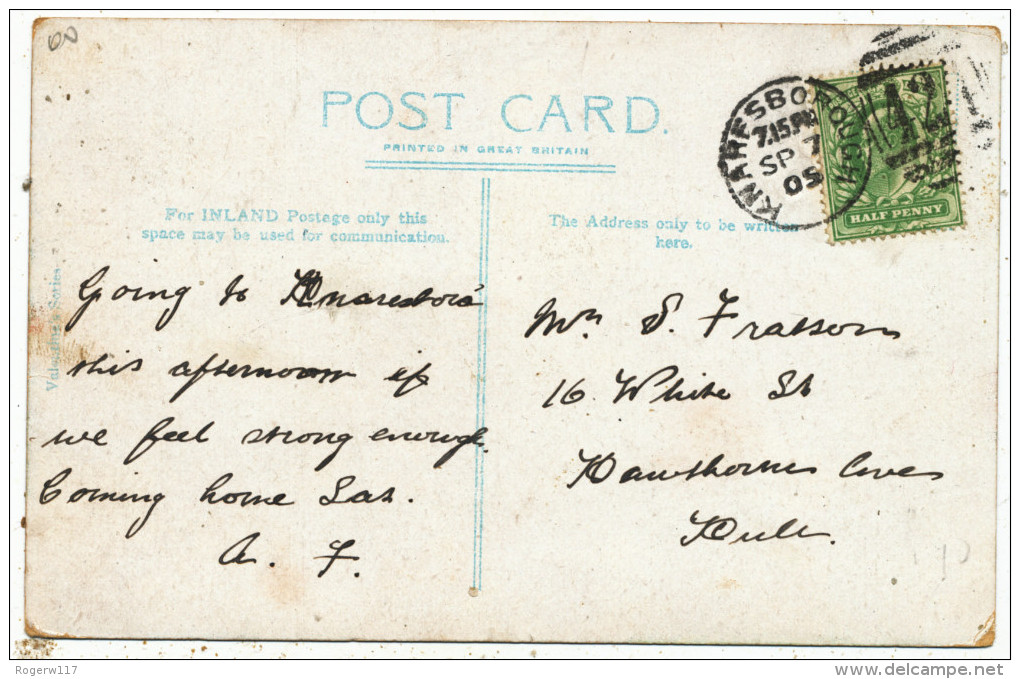 60
POST CARD.
PRINTED IN GREAT BRITAIN
For INLAND Postage only this
space may be used for communication.
The Address only to be written
here.
KNARESBOROUGH
7.15.PM
SP 7
05
HALF PENNY
Series
Going to Knaresboro'
this afternoon if
we feel strong enough.
Coming home Sat.
A. F.
Mrs S. Frattson
16 White St
Hawthorne Ave
Hull.
Rogerw117
www.delcampe.net